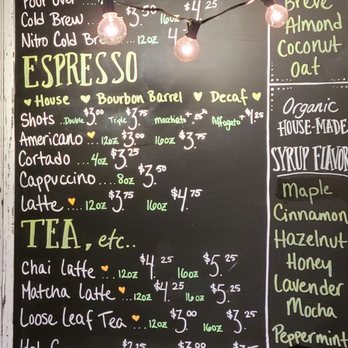 Pour Over
Cold Brew ... 12oz $3.50 16oz $4.25
Nitro Cold Brew 12oz $4
ESPRESSO
House Bourbon Barrel Decaf
Shots .. Double $3.00 Triple $3.75 macchiato +.25 Affogato +$1.25
Americano ... 12oz $3.00 16oz $3.75
Cortado ... 4oz $3.25
Cappuccino .... 8oz $3.50
Latte ... 12oz $3.75 16oz $4.75
TEA, etc..
Chai Latte ... 12oz $4.25 16oz $5.25
Matcha Latte .. 12oz $4.25 16oz $5.25
Loose Leaf Tea .. 12oz $3.00 16oz $3.25
Breve
Almond
Coconut
Oat
Organic
HOUSE-MADE
SYRUP FLAVOR
Maple
Cinnamon
Hazelnut
Honey
Lavender
Mocha
Peppermint